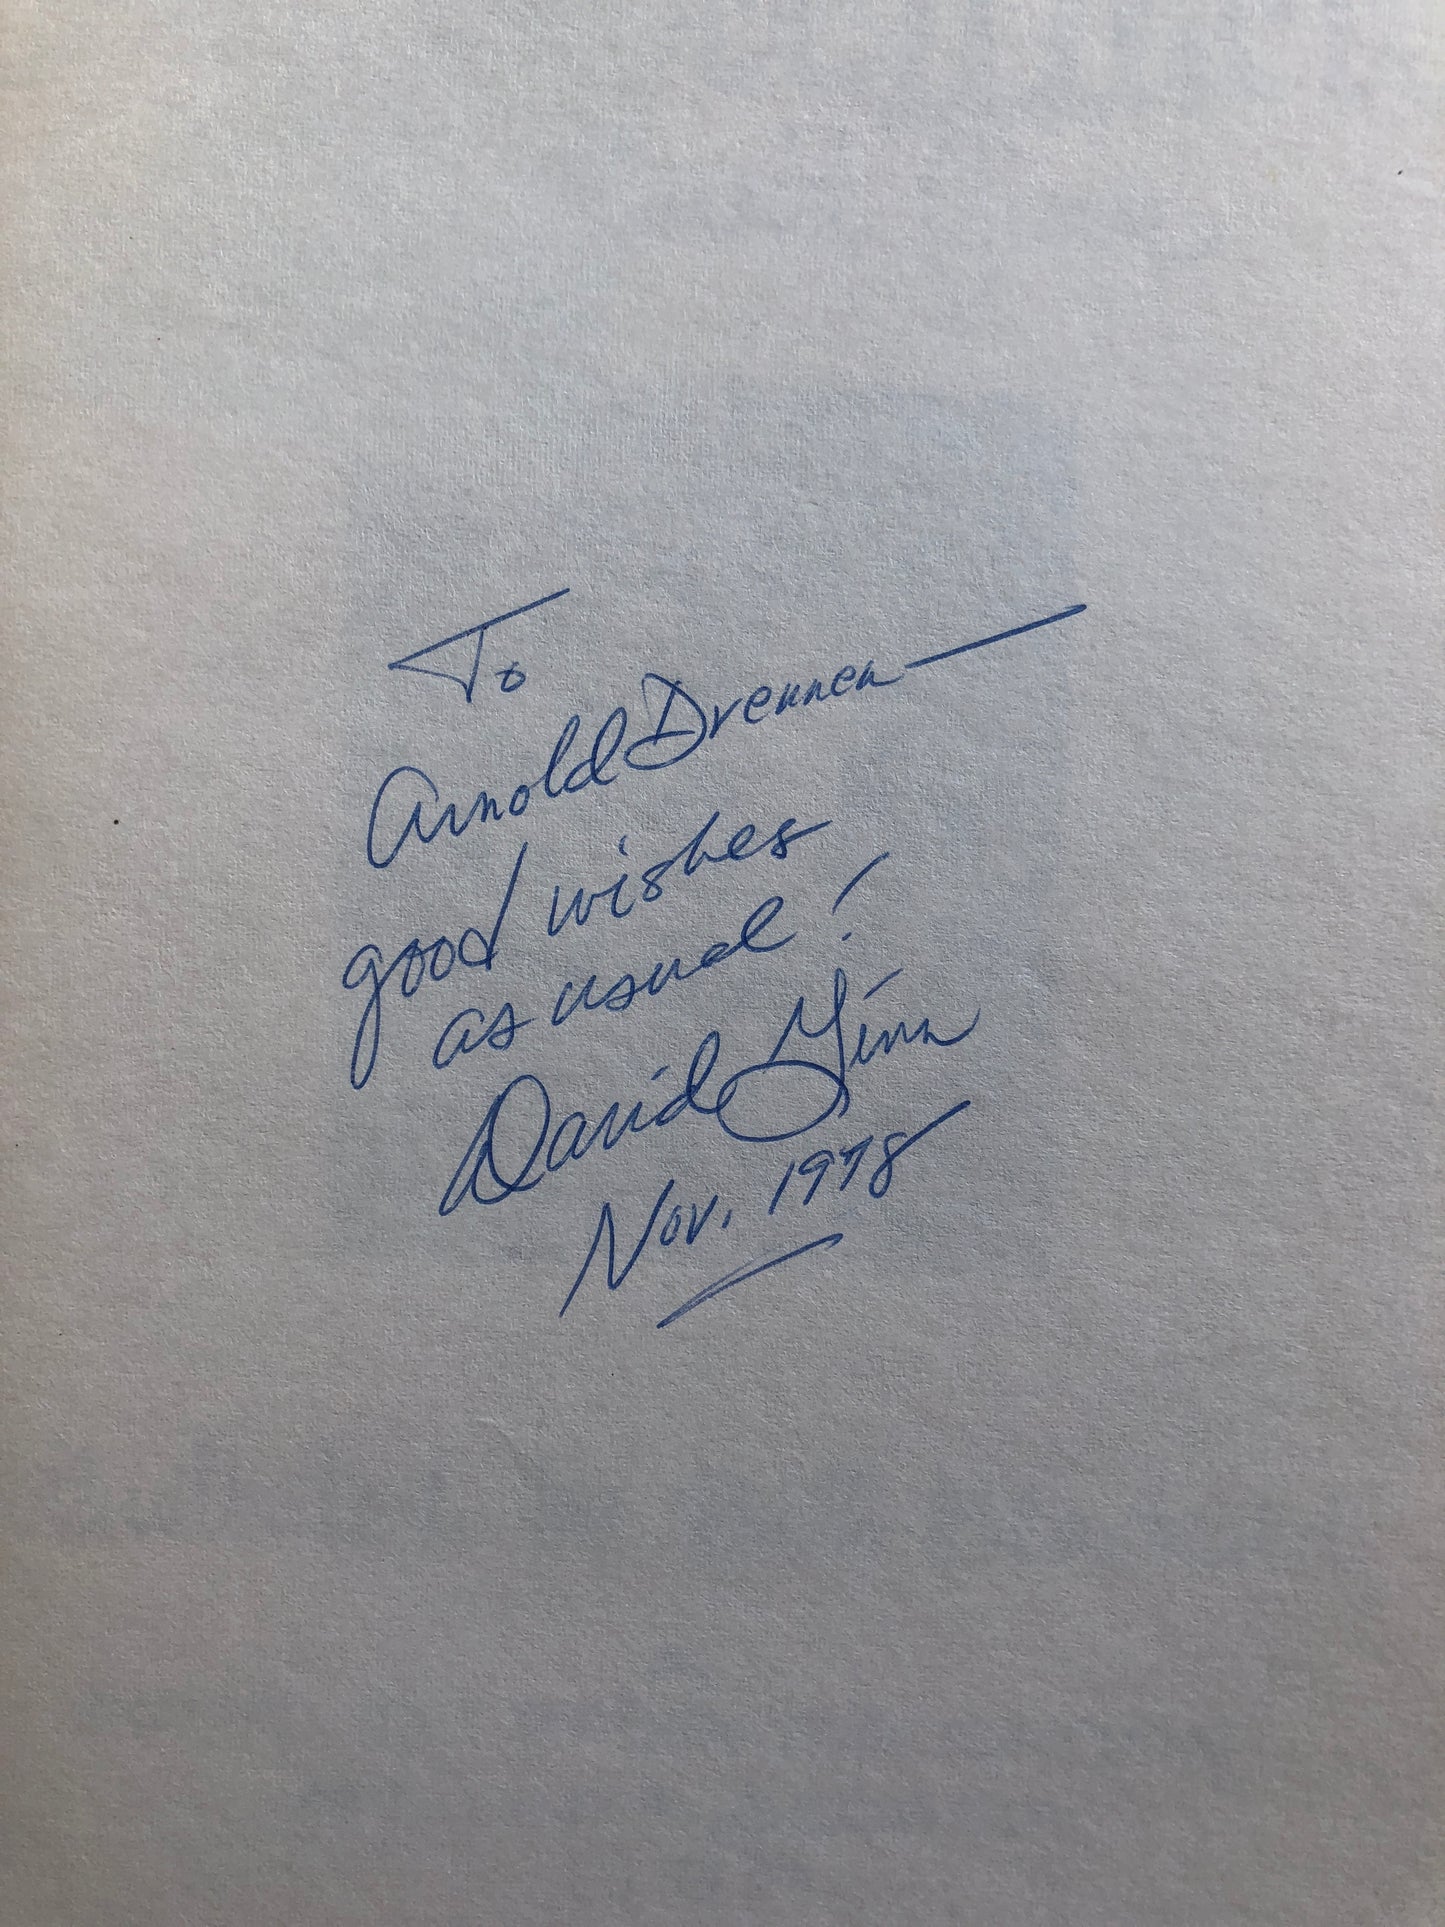 To
Arnold Drennen—
good wishes
as usual!
David Ginn
Nov. 1978